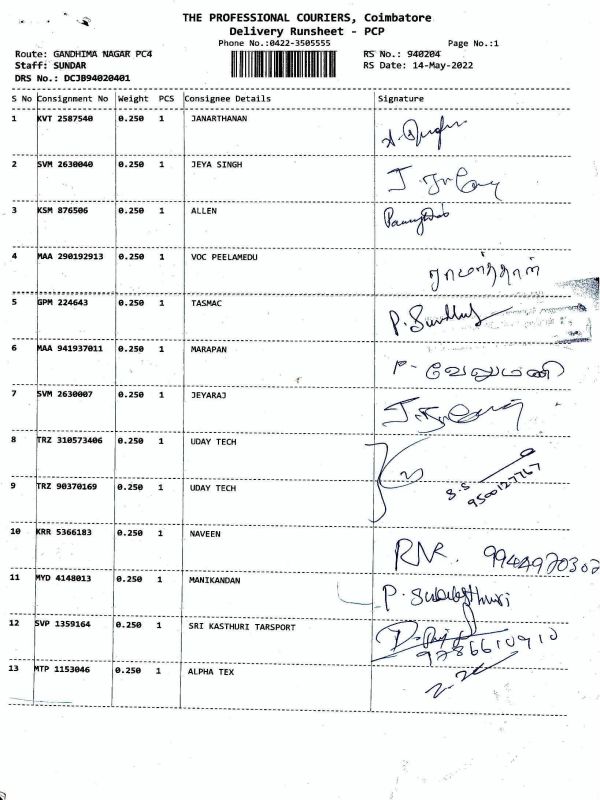 THE PROFESSIONAL COURIERS, Coimbatore
Delivery Runsheet - PCP
Phone No.:0422-3505555
Page No.:1
Route: GANDHIMA NAGAR PC4
RS No.: 940204
Staff: SUNDAR
RS Date: 14-May-2022
DRS No.: DCJB94020401
S No Consignment No Weight PCS Consignee Details Signature
1 KVT 2587540 0.250 1 JANARTHANAN
2 SVM 2630040 0.250 1 JEYA SINGH
3 KSM 876506 0.250 1 ALLEN
4 MAA 290192913 0.250 1 VOC PEELAMEDU
5 GPM 224643 0.250 1 TASMAC
6 MAA 941937011 0.250 1 MARAPAN P. வேலுமணி
7 SVM 2630007 0.250 1 JEYARAJ
8 TRZ 310573406 0.250 1 UDAY TECH
S.S
9500127767
9 TRZ 90370169 0.250 1 UDAY TECH
10 KRR 5366183 0.250 1 NAVEEN
11 MYD 4148013 0.250 1 MANIKANDAN
12 SVP 1359164 0.250 1 SRI KASTHURI TARSPORT
9786610910
13 MTP 1153046 0.250 1 ALPHA TEX